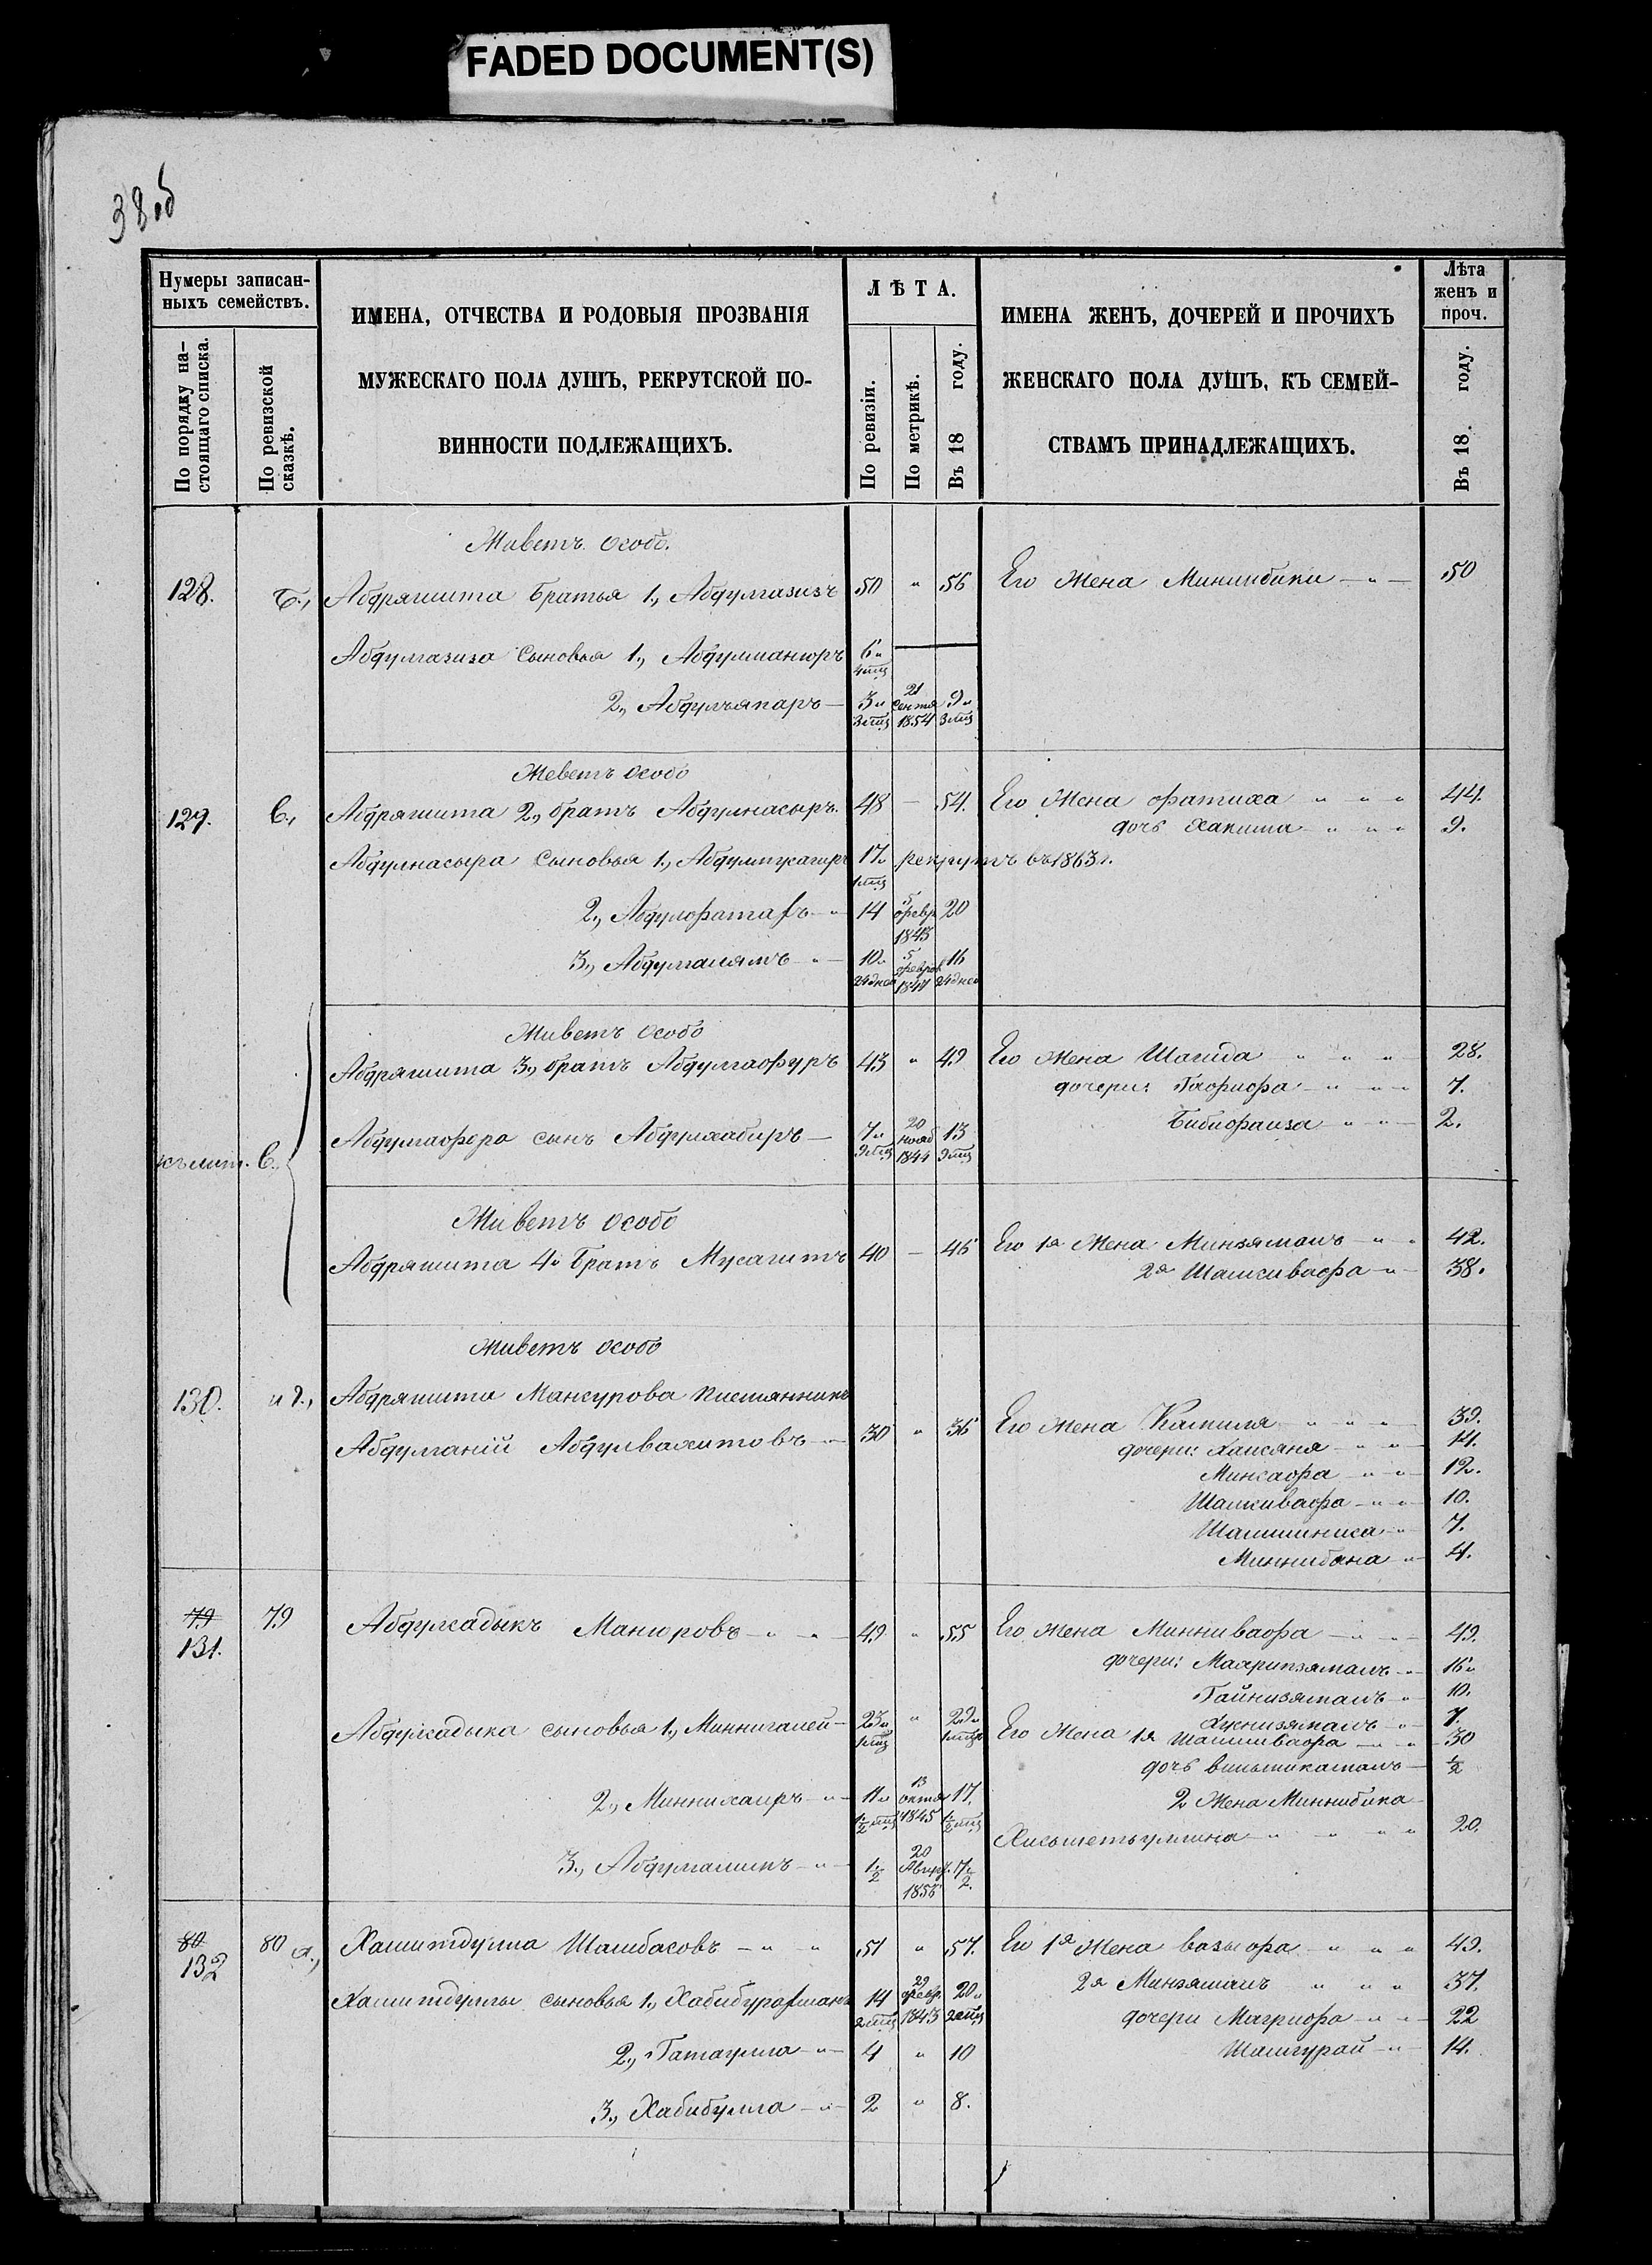 FADED DOCUMENT(S)
38об
Нумеры записан-
ныхъ семействъ.
По порядку на-
стоящаго списка.
По ревизской
сказкѣ.
ИМЕНА, ОТЧЕСТВА И РОДОВЫЯ ПРОЗВАНІЯ
МУЖЕСКАГО ПОЛА ДУШЪ, РЕКРУТСКОЙ ПО-
ВИННОСТИ ПОДЛЕЖАЩИХЪ.
ЛѢТА.
По ревизіи.
По метрикѣ.
Въ 18 году.
ИМЕНА ЖЕНЪ, ДОЧЕРЕЙ И ПРОЧИХЪ
ЖЕНСКАГО ПОЛА ДУШЪ, КЪ СЕМЕЙ-
СТВАМЪ ПРИНАДЛЕЖАЩИХЪ.
Лѣта
женъ и
проч.
Въ 18. году.
Живетъ особо.
128. Б., Абдряшита братья 1., Абдулгазизъ 50 " 56 Его жена Миннибики — " — 50
Абдулгазиза сыновья 1., Абдулманюръ 6 "
4 мц
2., Абдулъяпаръ — 3 " 21 сентя 1854 9 "
3 мц 3 мц
Живетъ особо
129. в., Абдряшита 2., братъ Абдулнасыръ. 48 — 54. Его жена Фатиха " " " 44.
дочь Хапиша " " " 9.
Абдулнасыра сыновья 1., 17. рекрутъ въ 1863 г.
1 мц
2., 14 5 февр 1843 20
3., Абдулгалямъ " — 10. 5 феврал 1847 16
24 дней 24 дней
Живетъ особо
Абдряшита 3., братъ Абдулгафуръ 43 " 49 Его жена Шагида " " " 28.
дочери: Гафиофа — " — " 7.
Бибифаиза " " — 2.
къ лит. в., Абдулгафора сынъ Абдулхабиръ — 7 " 20 нояб 1844 13
9 мц 9 мц
Живетъ особо
Абдряшита 4й братъ Мусагитъ 40 — 46 Его 1я жена Минзямалъ — " " 42.
2я Шамсивафа — " — 38.
Живетъ особо
130. и г., Абдряшита Мансурова племянникъ
Абдулганій Абдулвахитовъ — 30 " 36 Его жена Камиля — " " " — 39.
дочери: — " " 14.
Минсафа — " " — 12.
Шамсивафа — " " — 10.
— " 7.
Миннибана " 4.
79
131. 79 Абдулсадыкъ Манюровъ — " " — 49 " 55 Его жена Миннивафа — " " — 49.
дочери: " 16 "
Гайнизямалъ " 10.
" 7.
Абдулсадыка сыновья 1., Миннигалей — 23 " " 29 " Его жена 1я Шамсивафа — " " 30
1 мц 1 мц
дочь — 1/2
2., Миннихаиръ — " — 11 " 13 октя 1845 17. 2 жена Миннибика
1/2 мц 1/2 мц
Хисаметдулина — " " " " 20.
3., — " — 1 1/2 20 Авгус. 1856 7 1/2.
80
132 80 а., Хаммитдулла Шамбасовъ — " " 51 " 57. Его 1я жена вазыфа " " " 49.
Хаммитдуллы сыновья 1., Хабибурахманъ 14 29 февр. 1843 20 " 2я Минзямалъ " " " 37.
2 мц 2 мц
дочери Магриофа — " — 22
2., Гатаулла — " — 4 " 10 Шамгурай — " — 14.
3., Хабибулла — " — 2 " 8.